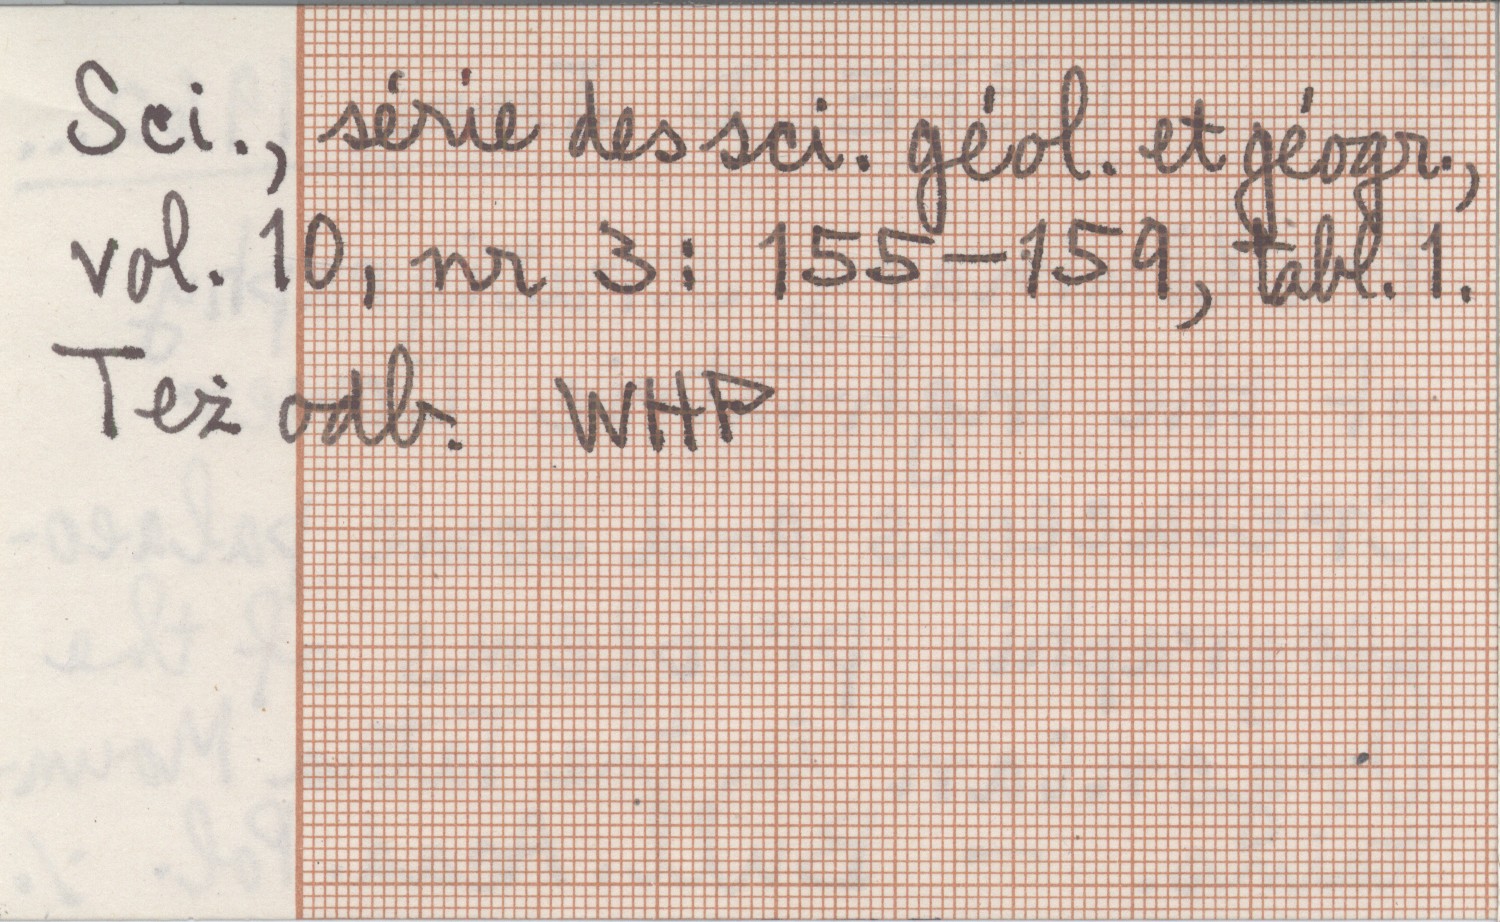 Sci., série des sci. géol. et géogr.,
vol. 10, nr 3: 155–159, tabl. 1.
Też odb. WHP